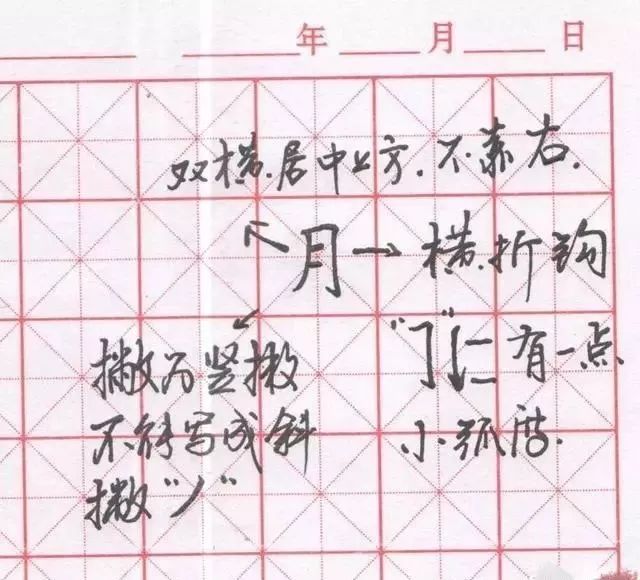 年 月 日
双横.居中上方.不右.
月→横.折钩
撇为竖撇
不能写成斜
撇“丿”
“㇆” 有一点
小弧度.